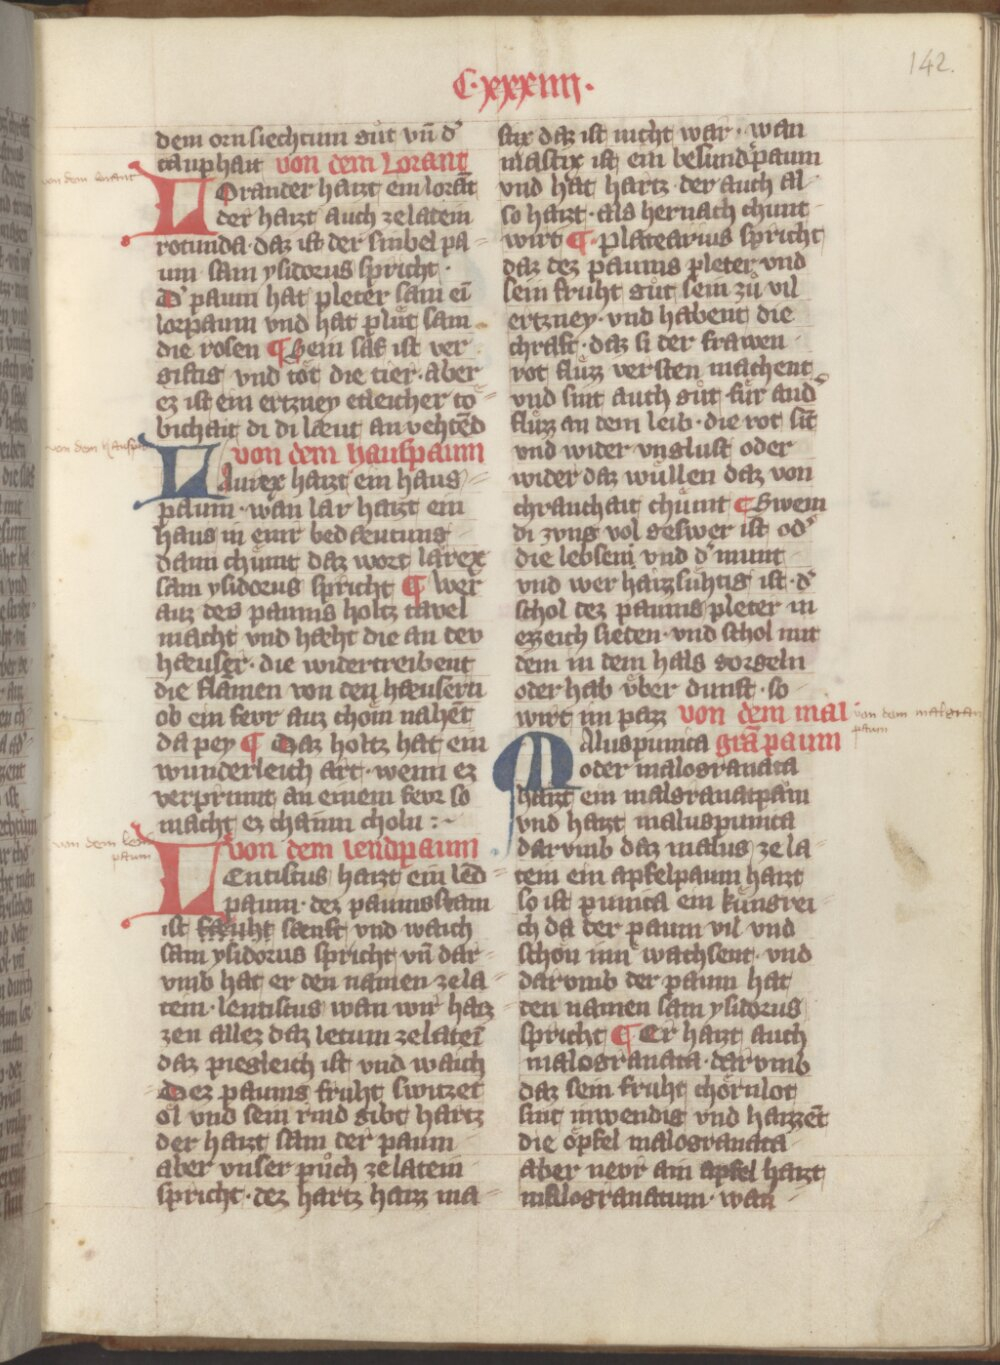 C·xxxiiii·
142.
dem orn siechtum gůt vn̄ dˀ
tauphait von dem Lorant
von dem lorant
LOrander haizt ein lorāt
der haizt auch ze latein
rotunda· daz ist der sinbel pa-
um· sam ysidorus spricht·
Dˀ paum hat pleter sam eī
lorpaum vnd hat plůt sam
die rosen ¶ Sein saf ist ver
giftig vnd tôt die tier· aber
ez ist ein ertzney etleicher to-
bichait di di læut an vehtēd
von dem hauspaum
LAurex haizt ein haus-
paum· wan lar haizt ein
haus in einr bedæutung
dann chůmt daz wort larex
sam ysidorus spricht ¶ Wer
auz des paums holtz tavel
macht vnd hæht die an dev
hæuser· die widertreibent
die flamen von den hæusern
ob ein fevr auz chom nahēt
da pey ¶ Daz holtz hat ein
wunderleich art· wenn ez
verprinnt an einem fevr so
macht ez chainn choln :~
von dem lendpaum
LEntiscus haizt ein lēd
paum· dez paums stam
ist fæuht sænft vnd waich
sam ysidorus spricht vn̄ dar-
vmb hat er den namen ze la
tein· lentiscus wan wir haiz
zen allez daz letum ze lateī
daz piegleich ist vnd waich
Dez paums fruht switzet
ôl vnd sein rind gibt hartz
der haizt sam der paum
aber vnser půch ze latein
spricht· dez hartz haiz ma-
stix daz ist nicht war· wan
mastix ist ein besundˀ paum
vnd hat hartz· der auch al-
so haizt· als hernach chunt
wirt ¶ Platearius spricht
daz dez paums pleter vnd
sein fruht gůt sein zů vil
ertzney· vnd habent die
chraft· daz si der frawen
rot flůzz versten machent
vnd sint auch gůt fůr andˀ
flůzz an dem leib· die rot sīt
vnd wider vnglust oder
wider daz wůllen daz von
chranchait chůmt ¶ Swem
di zvng vol geswer ist odˀ
die lebsem vnd dˀ munt
vnd wer haizsůhtig ist· dˀ
schol dez paums pleter in
ezzeich sieten· vnd schol mit
dem in dem hals gorgeln
oder hab vͤber dunst· so
wirt im pazz von dem mal
von dem malgran
paum
MAlus punica grā paum
oder malogranata
haizt ein malgranatpām
vnd haizt malus punica
darvmb daz malus ze la-
tein ein apfelpaum haizt
so ist punica ein kůngrei-
ch da der paum vil vnd
schôn inn wachsent· vnd
darvmb der paum hat
den namen sam ysidorus
spricht ¶ Er haizt auch
malogranata· darvmb
daz sein fruht chôrnlot
sint inwendig vnd haizzēt
die ôpfel malogranata
aber nevr ain apfel haizt
malogranatum· wan